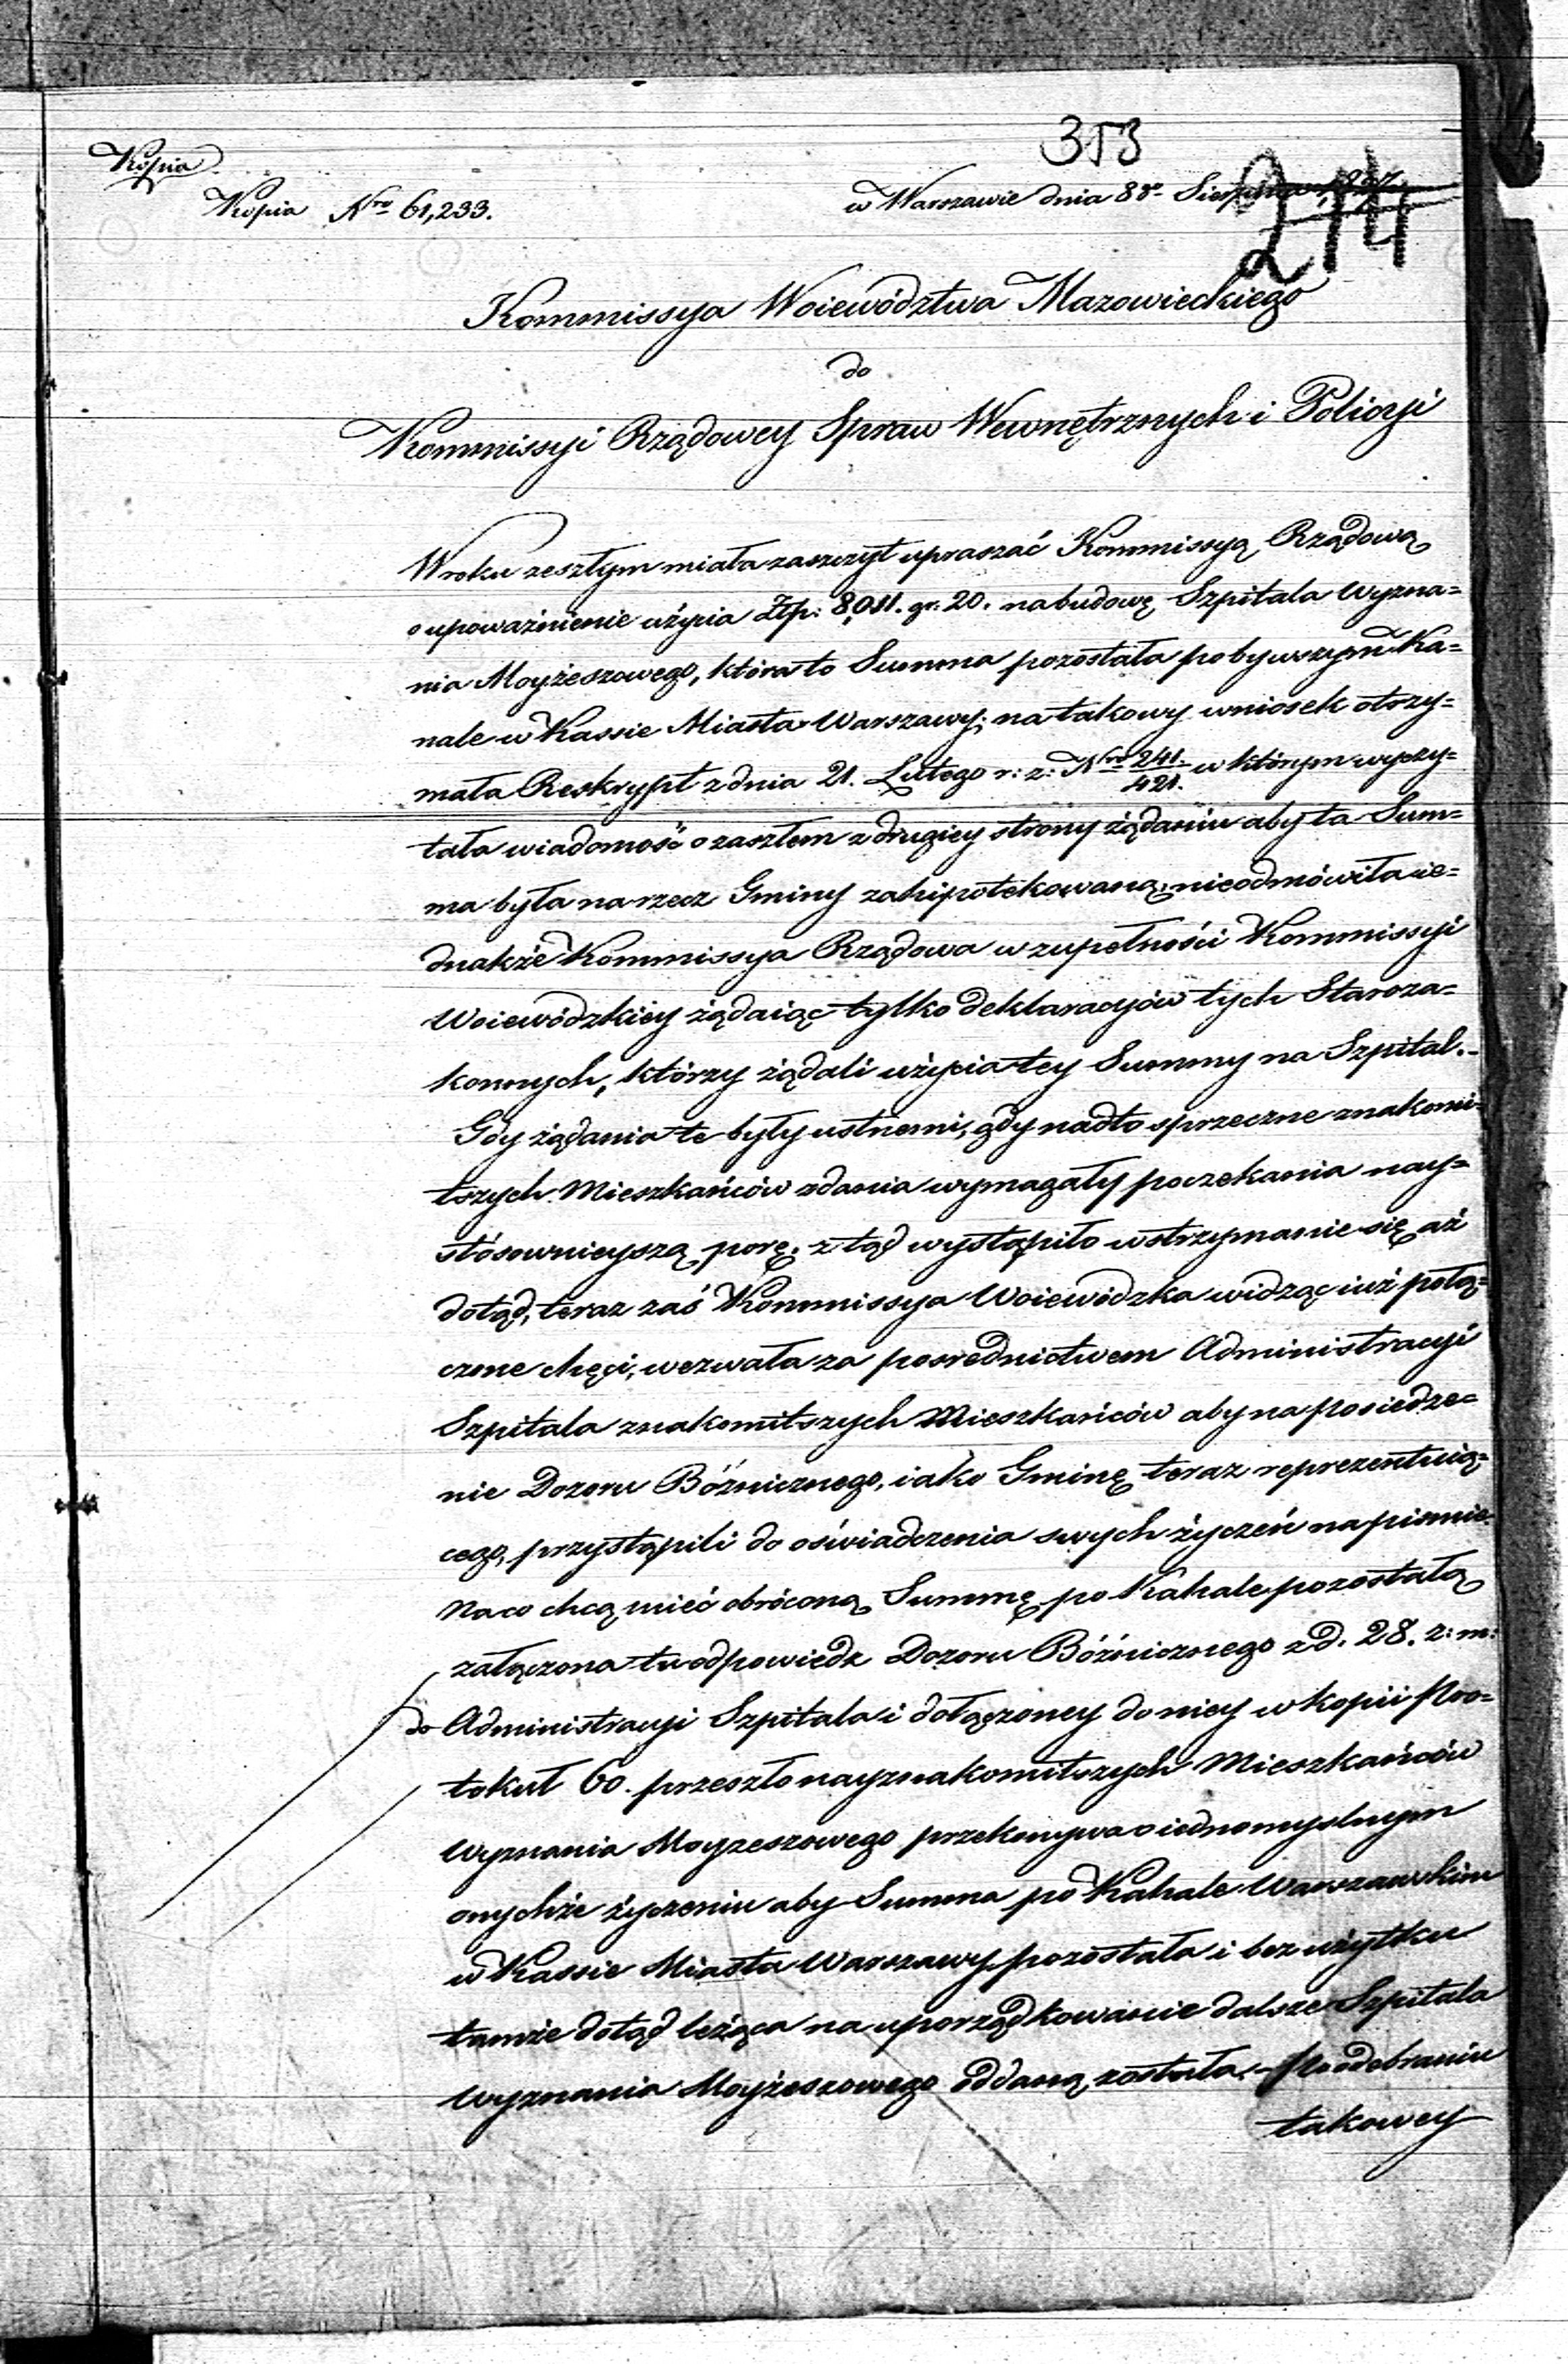 353
Kopia
Kopia Nro 61,233.
w Warszawie dnia 8go Sierpnia 1827.
214
Kommissya Woiewództwa Mazowieckiego
do
Kommissyi Rządowey Spraw Wewnętrznych i Policyi
W roku zeszłym miała zaszczyt upraszać Kommissyą Rządową
o upoważnienie użycia Złp: 8,011. gr: 20. na budowę Szpitala Wyzna=
nia Moyżeszowego, która to Summa pozostała po bywszym Ka=
hale w Kassie Miasta Warszawy; na takowy wniosek otrzy=
mała Reskrypt z dnia 21. Lutego r: z: Nro 241/421. w którym wyczy=
tała wiadomość o zaszłem z drugiey strony żądaniu aby ta Sum=
ma była na rzecz Gminy zahipotekowaną, nieodmówiła ie=
dnakże Kommissya Rządowa w zupełności Kommissyi
Woiewódzkiey żądaiąc tylko deklaracyów tych Staroza=
konnych, którzy żądali użycia tey Summy na Szpital.-
Gdy żądania te były ustnemi, gdy nadto sprzeczne znakomi=
tszych Mieszkańców zdania wymagały poczekania nay=
stósownieyszą porę. z tąd wystąpiło wstrzymanie się aż
dotąd, teraz zaś Kommissya Woiewódzka widząc iuż połą=
czone chęci, wezwała za posrednictwem Administracyi
Szpitala znakomitszych Mieszkańców aby na posiedze=
nie Dozoru Bóżnicznego, iako Gminę teraz reprezentuią=
cego, przystąpili do oświadczenia swych życzeń na pismie.
Na co chcą mieć obróconą Summę po Kahale pozostałą
załączona tu odpowiedz Dozoru Bóżnicznego z d. 28. z: m:
do Administracyi Szpitala i dołączoney do niey w kopii Pro=
tokuł 60. przeszło nayznakomitszych Mieszkańców
Wyznania Moyzeszowego przekonywa o iednomyslnym
onychże życzeniu aby Summa po Kahale Warszawskim
w Kassie Miasta Warszawy pozostała i bez użytku
tamże dotąd leżąca na uporządkowanie dalsze Szpitala
Wyznania Moyżeszowego oddaną została.- Po odebraniu
takowey